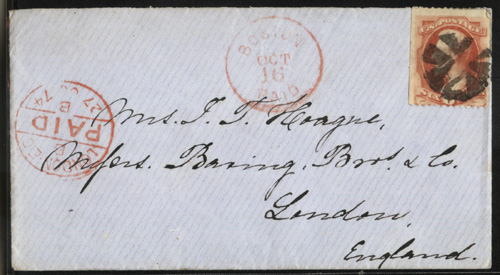 BOSTON
OCT
16
PAID
U.S. POSTAGE
LONDON
PAID
B 74
27 OC
Mrs. T. T. Hoague,
Messrs. Baring, Bros. & Co.
London,
England.